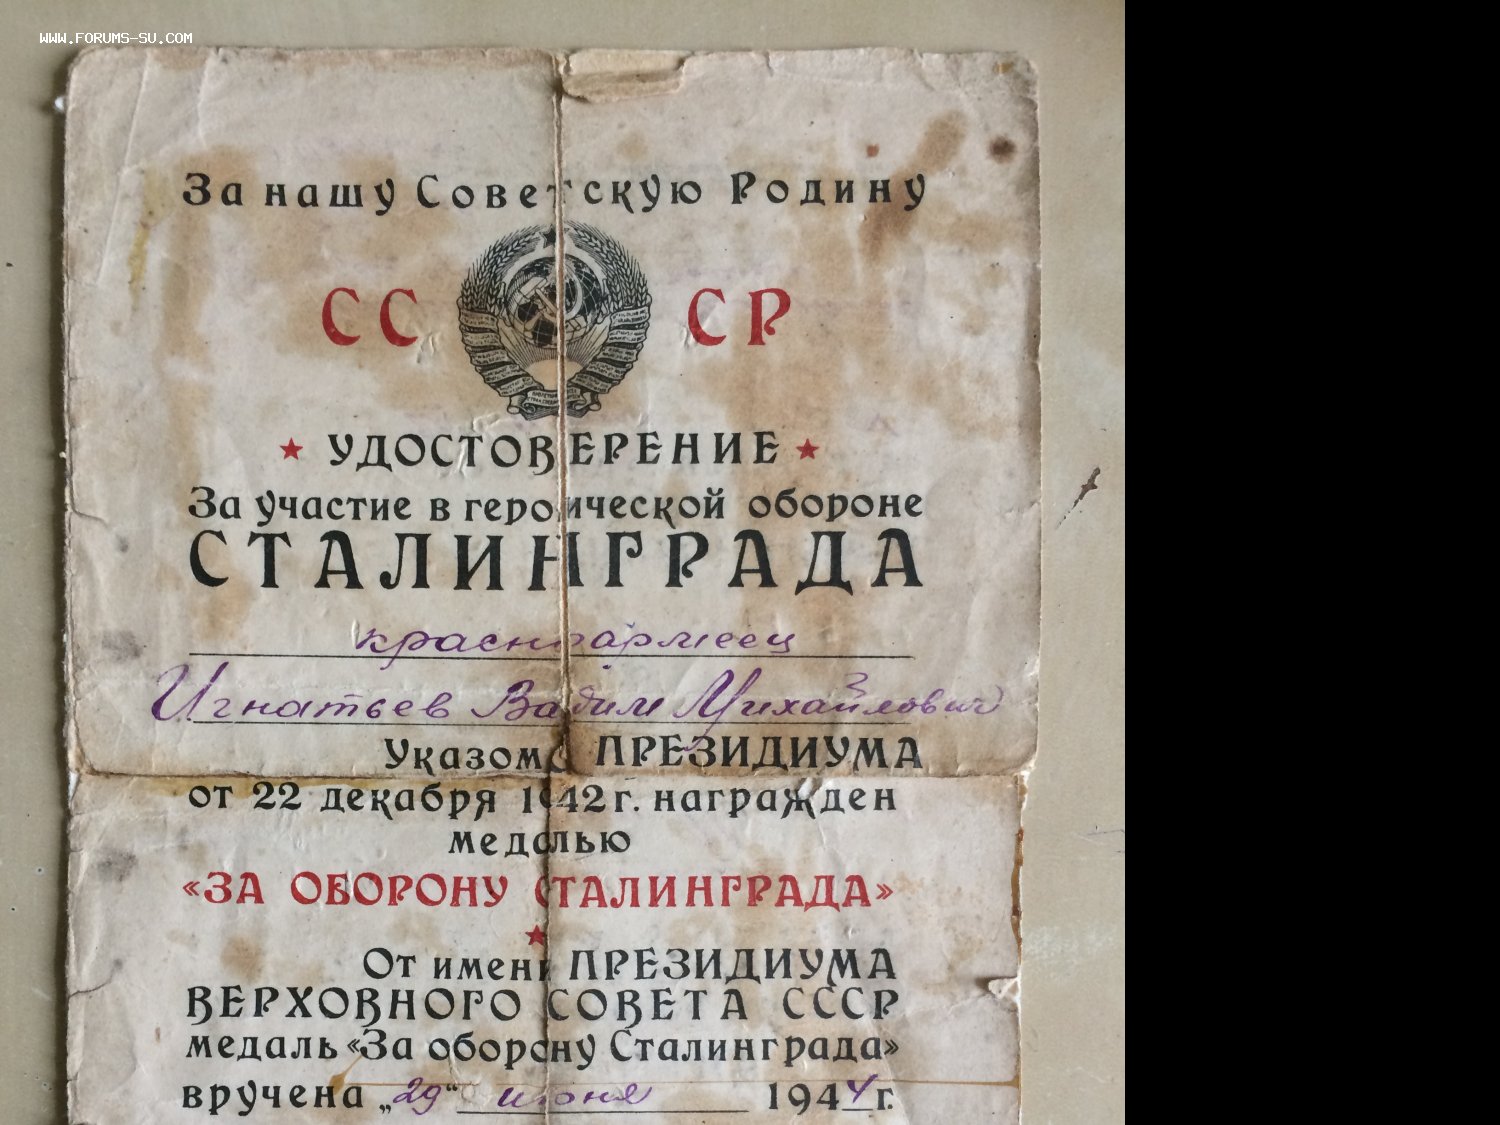 WWW.FORUMS-SU.COM
За нашу Советскую Родину
СС СР
УДОСТОВЕРЕНИЕ
За участие в героической обороне
СТАЛИНГРАДА
красноармеец
Игнатьев Вадим Михайлович
Указом ПРЕЗИДИУМА
от 22 декабря 1942 г. награжден
медалью
«ЗА ОБОРОНУ СТАЛИНГРАДА»
От имени ПРЕЗИДИУМА
ВЕРХОВНОГО СОВЕТА СССР
медаль «За оборону Сталинграда»
вручена „29“ июня 1944 г.